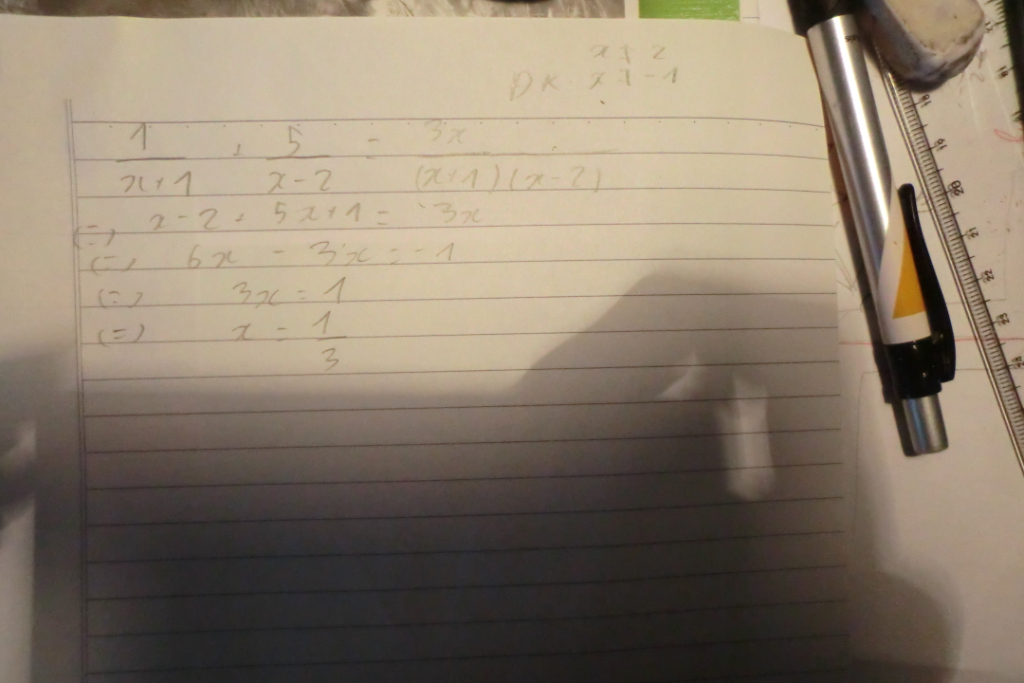 x ≠ 2
ĐK x ≠ -1
1/(x+1) + 5/(x-2) = 3x/((x+1)(x-2))
(=) x - 2 + 5x + 1 = 3x
(=) 6x - 3x = -1
(=) 3x = 1
(=) x = 1/3